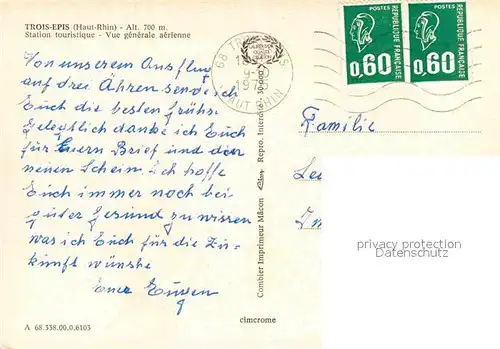 TROIS-EPIS (Haut-Rhin) - Alt. 700 m.
Station touristique - Vue générale aérienne
Von unserem Ausflug
auf drei Ähren sende ich
Euch die besten Grüße
Gelegtlich danke ich Euch
für Euern Brief und den
neuen Schein. ich hoffe
Euch immer noch bei
guter Gesund zu wissen
was ich Euch für die Zu-
kunft wünsche
Euer Eugen
A 68.338.00.0.6103
cimcrome
Combier Imprimeur Mâcon
Repro. Interdite
68
HAUT RHIN
POSTES
REPUBLIQUE FRANÇAISE
0,60
POSTES
REPUBLIQUE FRANÇAISE
0,60
Familie
privacy protection